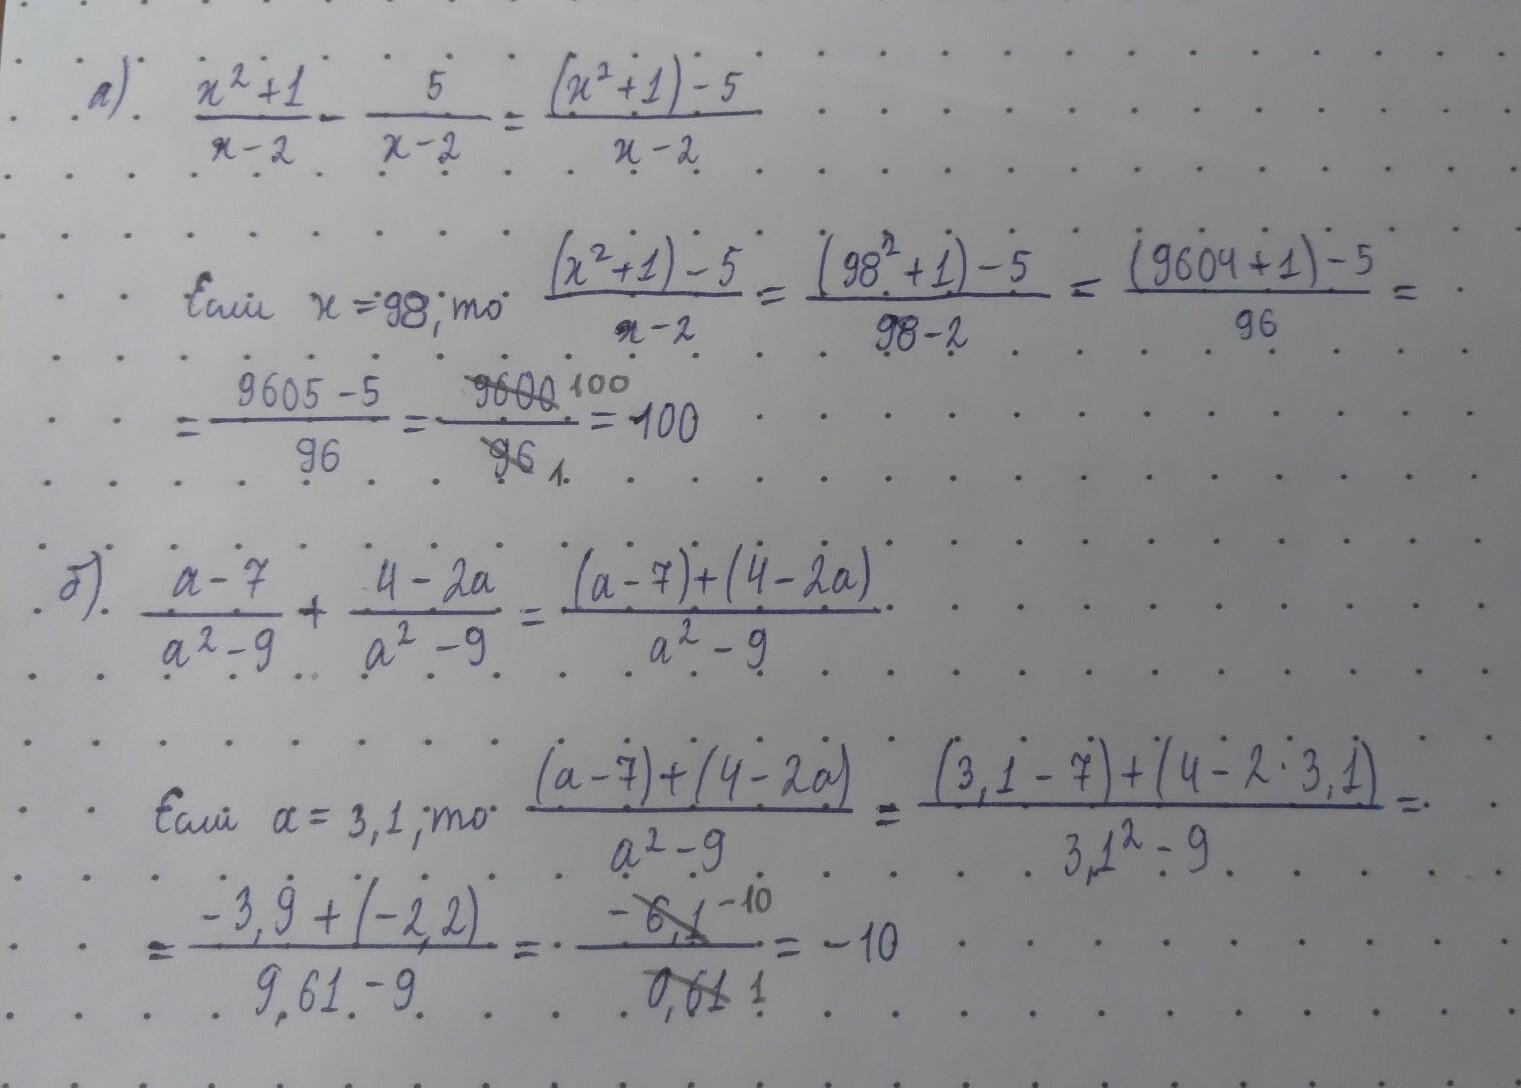 а) (x²+1)/(x-2) - 5/(x-2) = ((x²+1)-5)/(x-2)
Если x=98, то ((x²+1)-5)/(x-2) = ((98²+1)-5)/(98-2) = ((9604+1)-5)/96 =
= (9605-5)/96 = 9600 100/96 1 = 100
б) (a-7)/(a²-9) + (4-2a)/(a²-9) = ((a-7)+(4-2a))/(a²-9)
Если a=3,1, то ((a-7)+(4-2a))/(a²-9) = ((3,1-7)+(4-2·3,1))/(3,1²-9) =
= (-3,9+(-2,2))/(9,61-9) = -6,1 -10/0,61 1 = -10